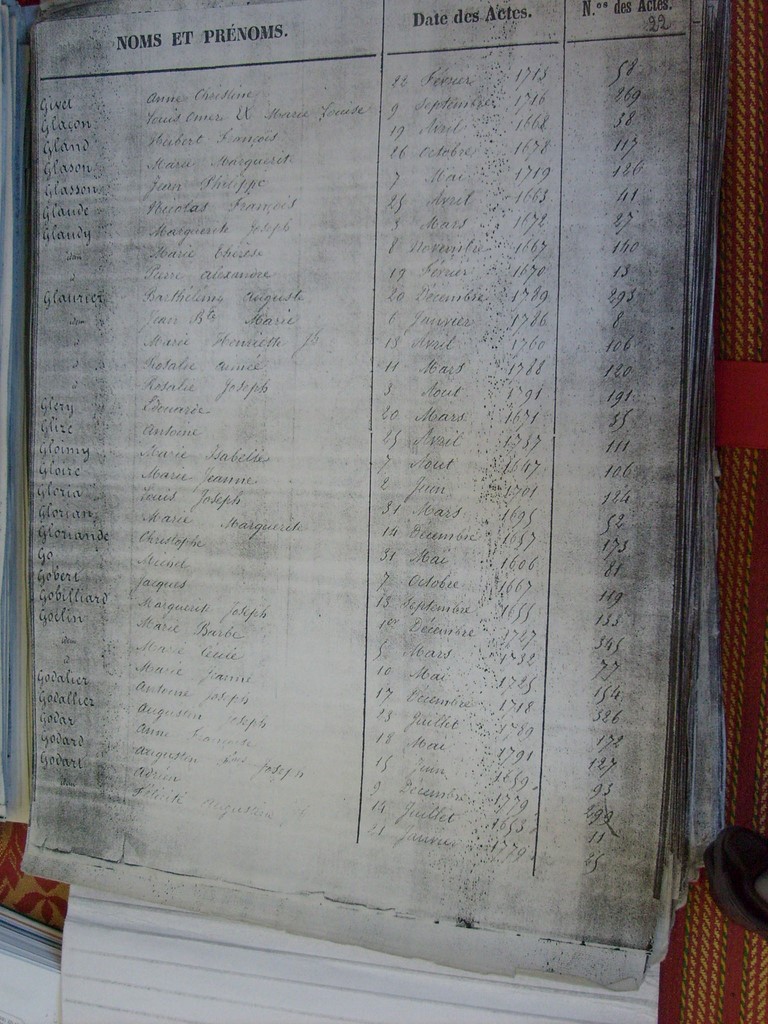 NOMS ET PRÉNOMS. Date des Actes. N.os des Actes.
22
Givet Anne Christine 22 Février 1713 58
Glaçon Louis Omer & Marie Louise 9 Septembre 1716 269
Gland Hubert François 19 Avril 1668 38
Glason Marie Marguerite 26 Octobre 1678 117
Glasson Jean Philippe 7 Mai 1719 126
Glaude Nicolas François 25 Avril 1663 41
Glaudy Marguerite Joseph 3 Mars 1672 27
idem Marie Thérèse 8 Novembre 1667 140
d Pierre Alexandre 19 Février 1670 13
Glaurier Barthélemy Auguste 20 Décembre 1789 293
idem Jean Bte Marie 6 Janvier 1786 8
d Marie Henriette Jh 13 Avril 1760 106
d Rosalie Aimée 11 Mars 1788 120
d Rosalie Joseph 3 Aout 1791 191
Glery Edouarde 20 Mars 1671 35
Glize Antoine 25 Avril 1737 111
Gloimy Marie Isabelle 7 Aout 1647 106
Gloire Marie Jeanne 2 Juin 1701 184
Gloria Louis Joseph 31 Mars 1695 52
Glorian Marie Marguerite 14 Décembre 1657 173
Gloriande Christophe 31 Mai 1606 81
Go Michel 7 Octobre 1667 119
Gobert Jacques 13 Septembre 1655 133
Gobilliard Marguerite Joseph 1er Décembre 1727 345
Goblin Marie Barbe 5 Mars 1732 77
idem Marie Cécile 10 Mai 1725 154
d Marie Jeanne 17 Décembre 1718 326
Godalier Antoine Joseph 13 Juillet 1789 172
Godallier Augustin Joseph 18 Mai 1791 127
Godar Anne Françoise 15 Juin 1659 93
Godard Augustin Joseph 9 Décembre 1779 299
Godart Adrien 14 Juillet 1653 11
idem Félicité Augustine Jh 21 Janvier 1779 25